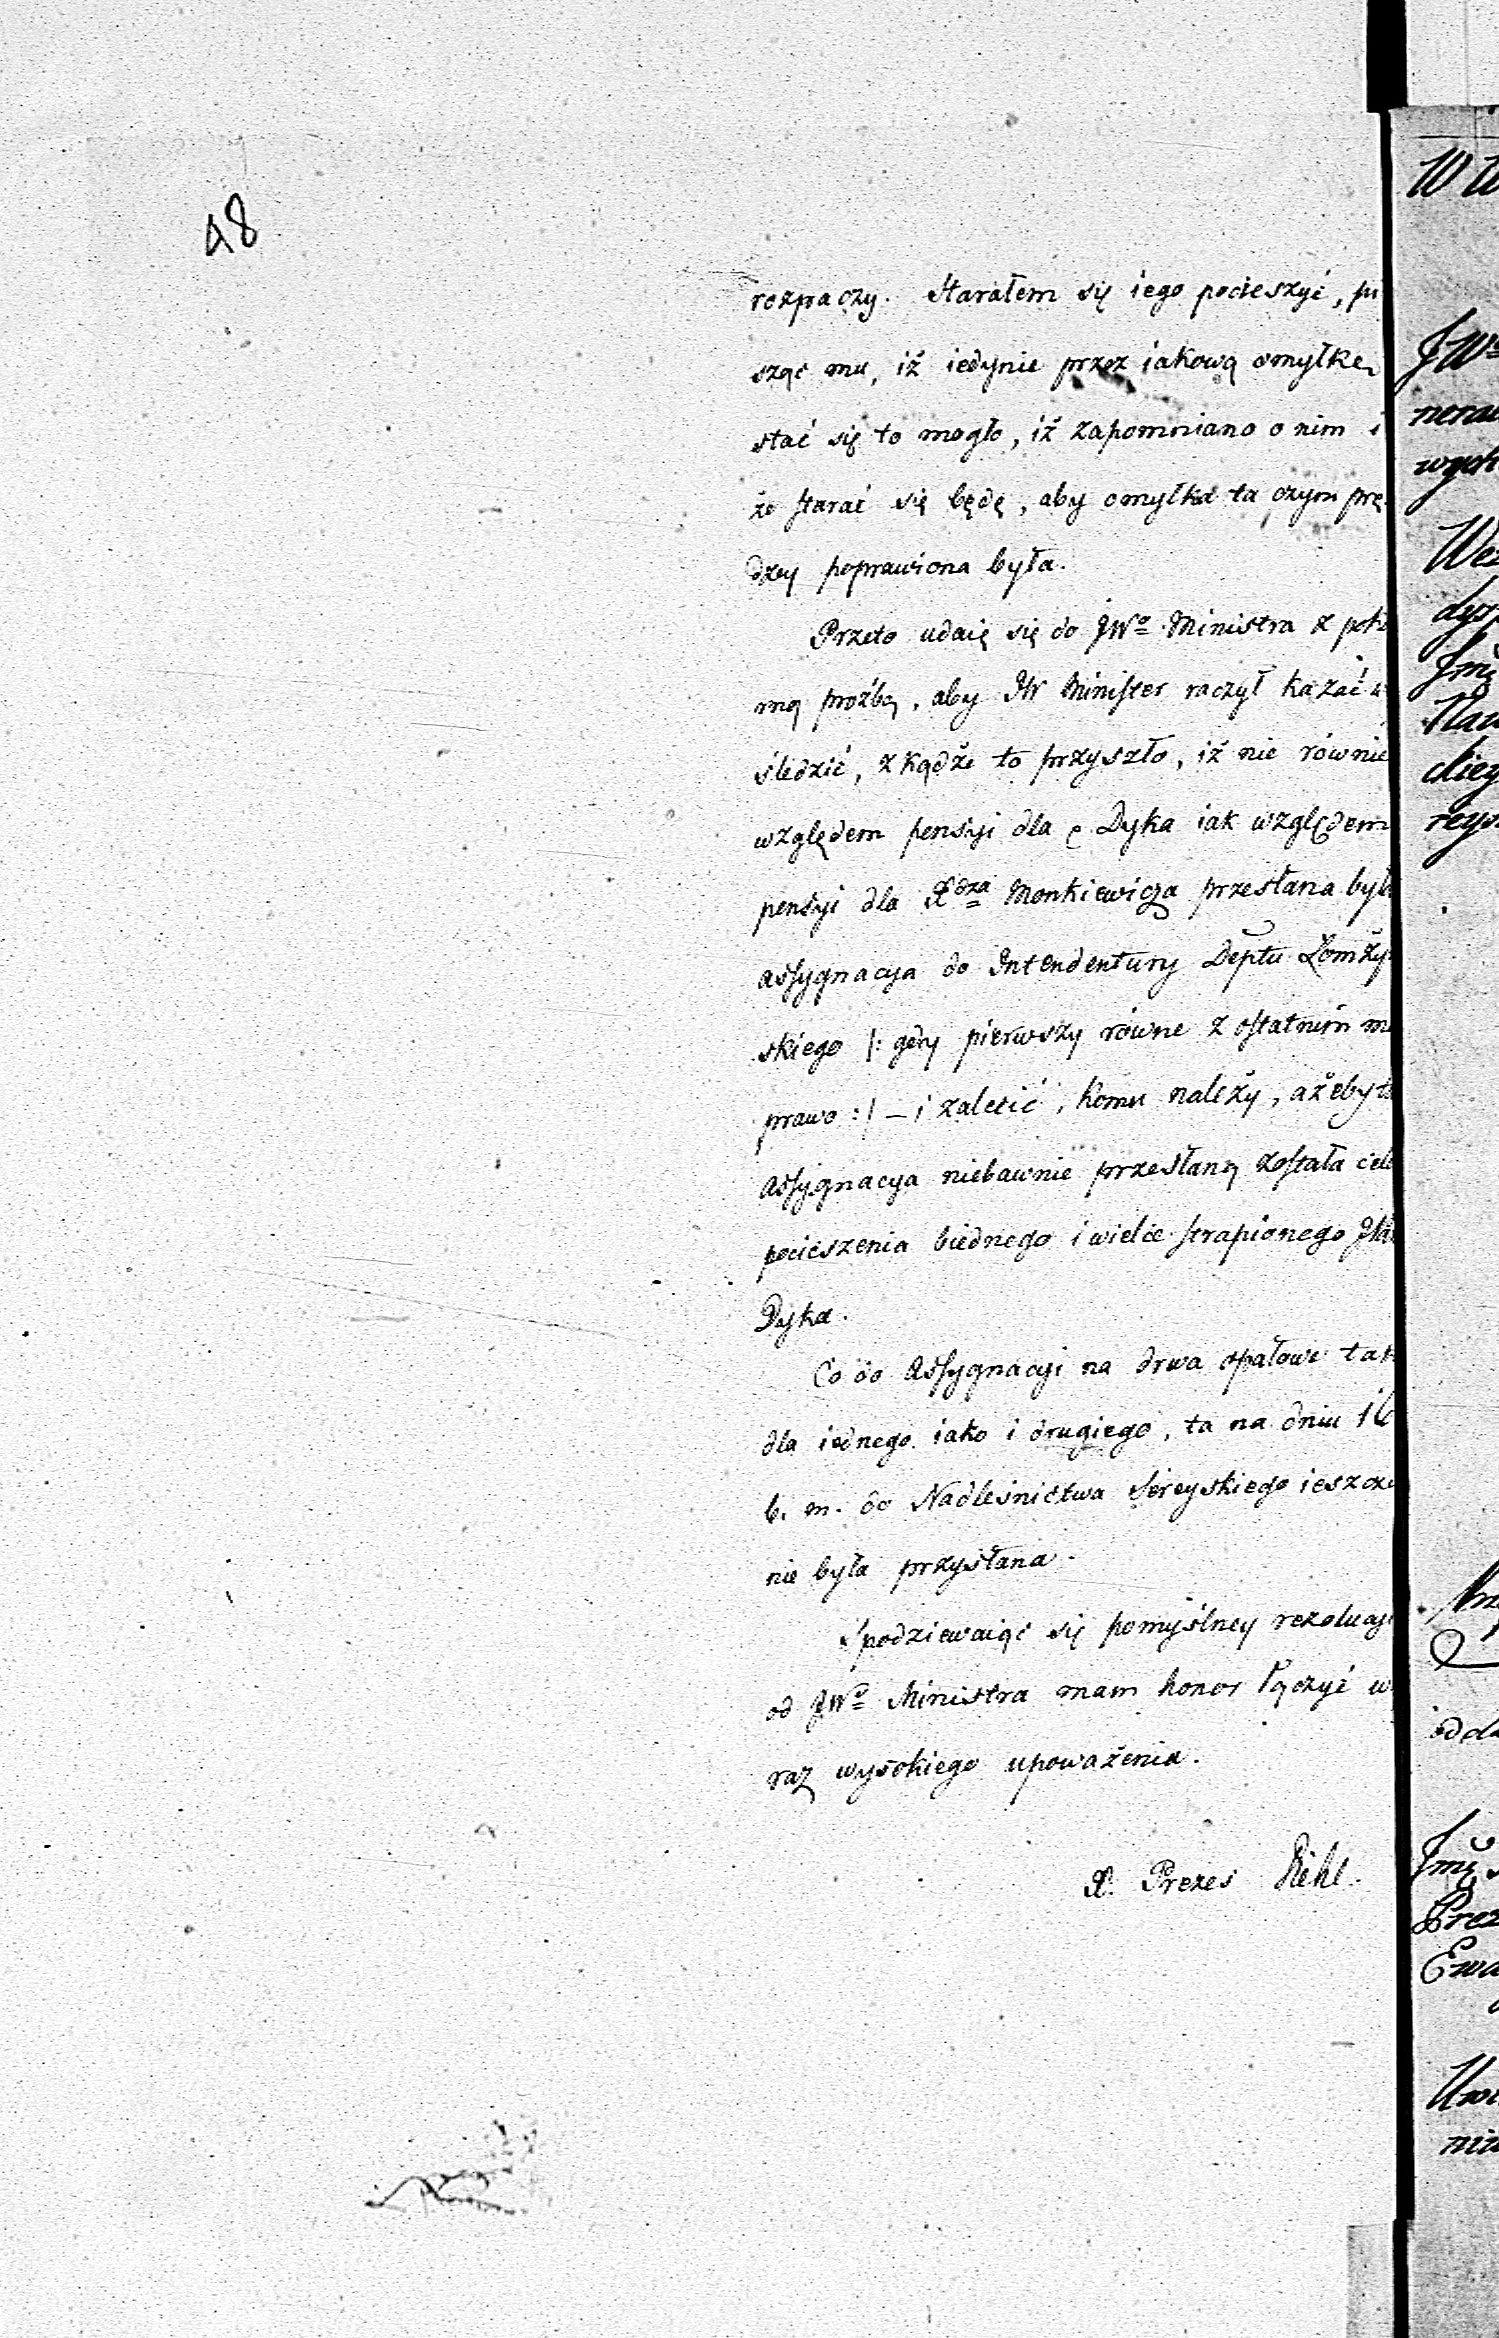 48
rozpaczy. Starałem się iego pocieszyć, pi
sząc mu, iż iedynie przez iakową omyłkę
stać się to mogło, iż zapomniano o nim i
że starać się będę, aby omyłka ta czym prę-
dzey poprawiona była.
Przeto udaię się do JWo Ministra z
mą proźbą, aby JW Minister raczył kazać
śledzić, zkądże to przyszło, iż nie równie
względem pensyi dla Dyka iak względem
pensyi dla Xdza Monkiewicza przesłana była
assygnacya do Intendentury Deptu Łomży
skiego |: gdy pierwszy równe z ostatnim
prawo :| – i zalecić, komu należy, ażeby
assygnacya niebawnie przesłaną została cel
pocieszenia biednego i wielce strapionego
Dyka.
Co do Assygnacyi na drwa opałowe tak
dla iednego iako i drugiego, ta na dniu 16
b. m. do Nadleśnictwa Sereyskiego ieszcze
nie była przysłana.
Spodziewaiąc się pomyślney rezolucyi
od JWo Ministra mam honor łączyć wy
raz wysokiego upoważenia.
X. Prezes Diehl.
W W
JWo
nera
wych
Wez
dys
Jmę
Nau
ckiey
reys
Jmę
Prez
Ewa